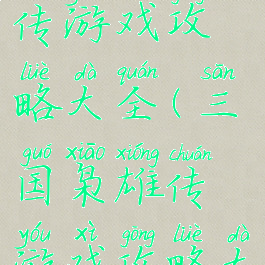 传游戏攻
lüè dà quán sān
略大全(三
guó xiāo xióng chuán
国枭雄传
yóu xì gōng lüè dà
游戏攻略大